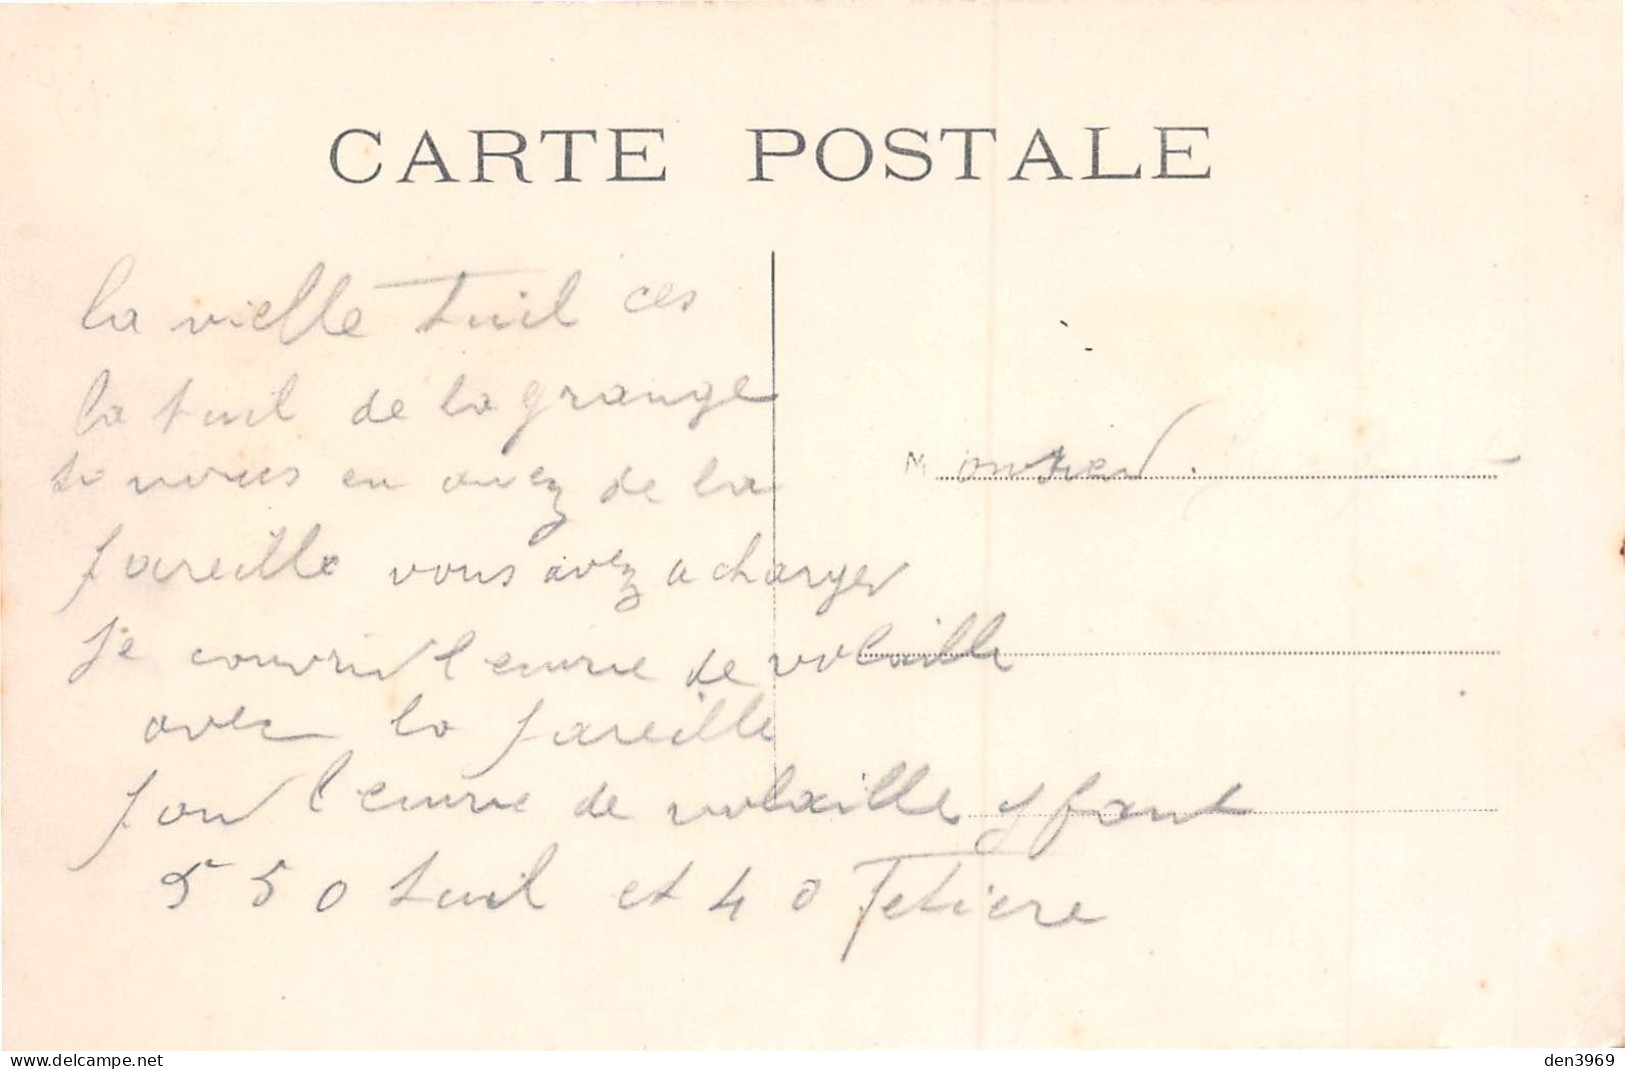 CARTE POSTALE
la vielle Tuil ces
la tuil de la grange
si vous en avez de la
pareille vous avez a charger
je couvrir l'ecurie de volaille
avec la pareille
pour l'ecurie de volaille y faut
550 tuil et 40 Fetiere
delcampe.net
den3969